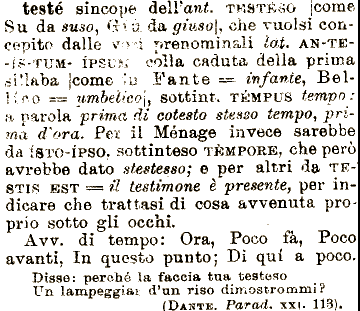 testé sincope dell'ant. TESTÈSO |come
Su da suso, Giù da giuso|, che vuolsi con-
cepito dalle voci prenominali lat. AN-TE-
-ÍS-TUM- ÍPSUM colla caduta della prima
sillaba |come in Fante = infante, Bel-
lico = umbelico|, sottint. TÉMPUS tempo:
a parola prima di cotesto stesso tempo, pri-
ma d'ora. Per il Ménage invece sarebbe
da ÍSTO-ÍPSO, sottinteso TÈMPORE, che però
avrebbe dato stestesso; e per altri da TE-
STIS EST = il testimone è presente, per in-
dicare che trattasi di cosa avvenuta pro-
prio sotto gli occhi.
Avv. di tempo: Ora, Poco fà, Poco
avanti, In questo punto; Di quí a poco.
Disse: perché la faccia tua testeso
Un lampeggiar d'un riso dimostrommi?
(DANTE. Parad. XXI. 113).